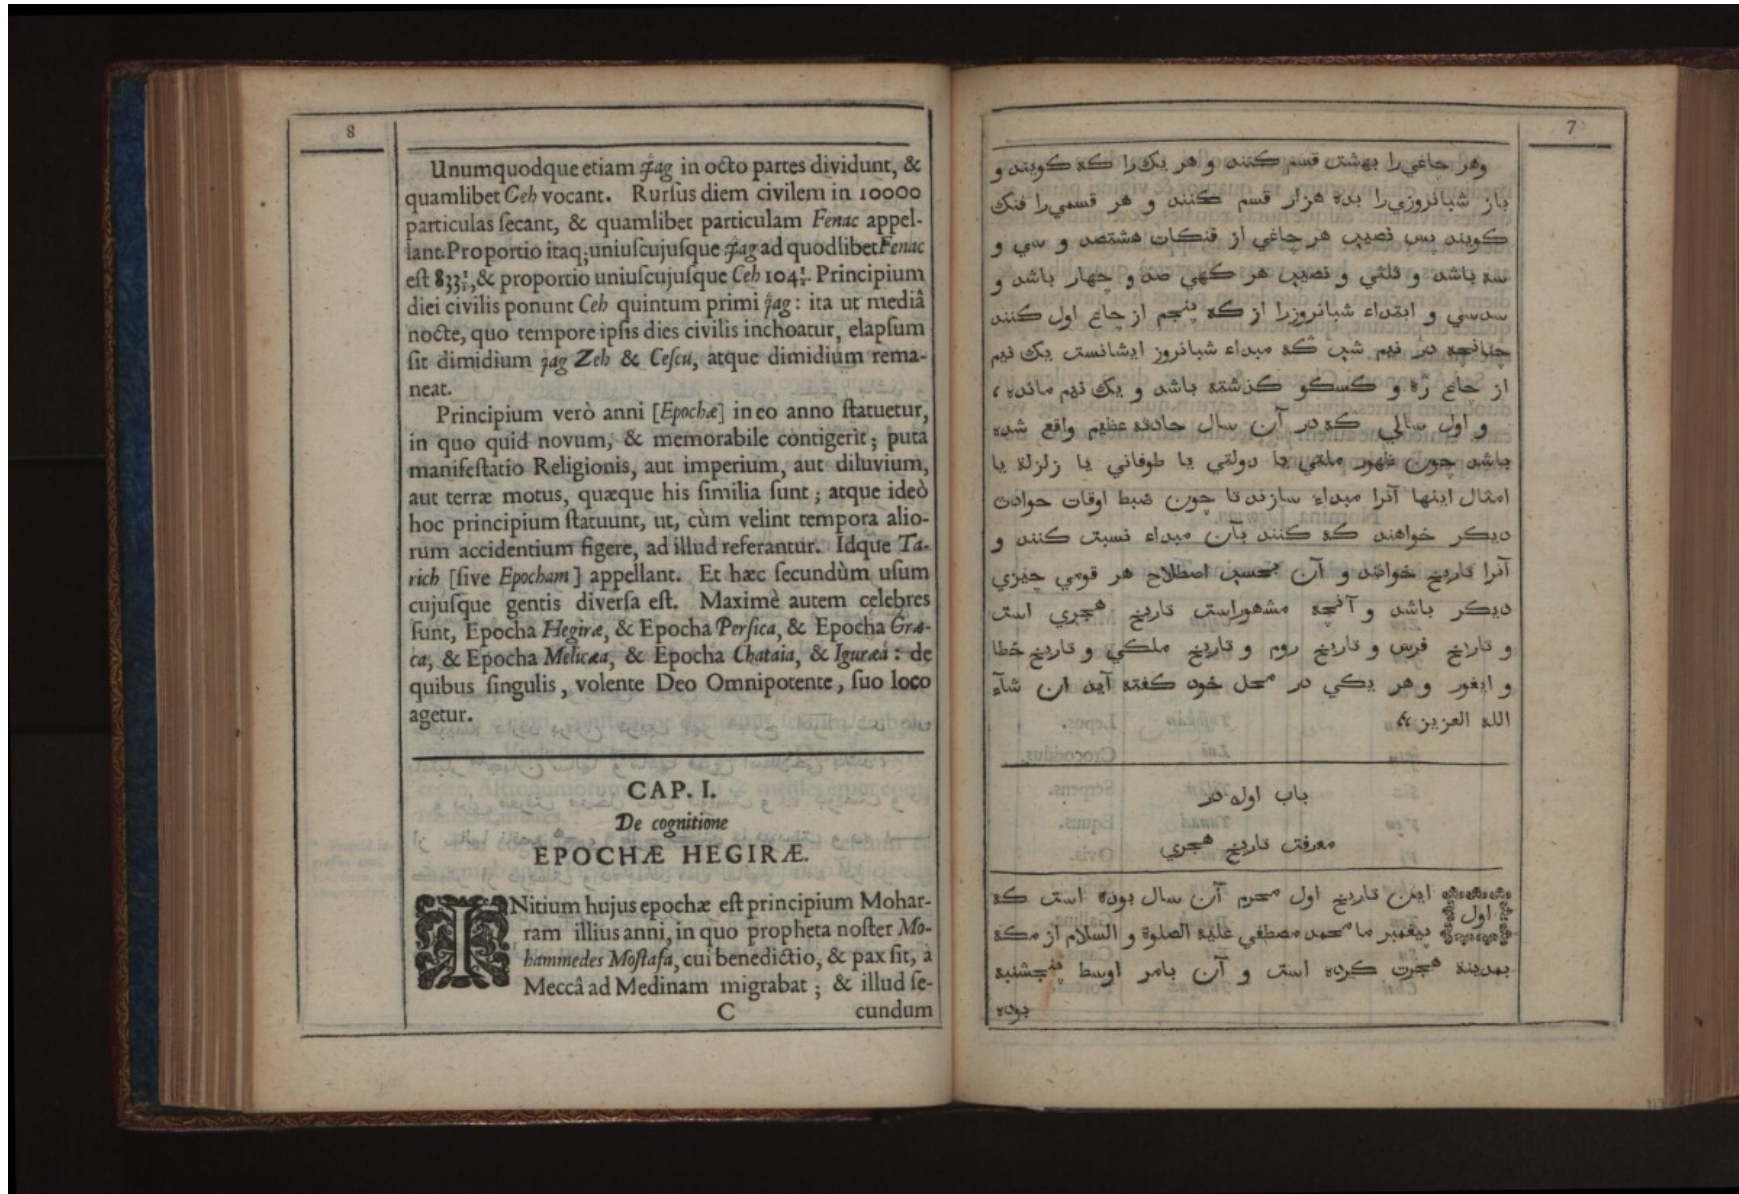 8
Unumquodque etiam ʠag in octo partes dividunt, &
quamlibet Ceh vocant. Rurſus diem civilem in 10000
particulas ſecant, & quamlibet particulam Fenac appel-
lant. Proportio itaq; uniuſcujuſque ʠag ad quodlibet Fenac
eſt 833⅓, & proportio uniuſcujuſque Ceh 104⅙. Principium
diei civilis ponunt Ceh quintum primi ʠag: ita ut mediâ
nocte, quo tempore ipſis dies civilis inchoatur, elapſum
ſit dimidium ʠag Zeh & Ceſcu, atque dimidium rema-
neat.
Principium verò anni [Epochæ] in eo anno ſtatuetur,
in quo quid novum, & memorabile contigerit; puta
manifeſtatio Religionis, aut imperium, aut diluvium,
aut terræ motus, quæque his ſimilia ſunt; atque ideò
hoc principium ſtatuunt, ut, cùm velint tempora alio-
rum accidentium figere, ad illud referantur. Idque Ta-
rich [ſive Epocham] appellant. Et hæc ſecundùm uſum
cujuſque gentis diverſa eſt. Maximè autem celebres
ſunt, Epocha Hegiræ, & Epocha Perſica, & Epocha Græ-
ca, & Epocha Melicæa, & Epocha Chataia, & Iguræa: de
quibus ſingulis, volente Deo Omnipotente, ſuo loco
agetur.
CAP. I.
De cognitione
EPOCHÆ HEGIRÆ.
INitium hujus epochæ eſt principium Mohar-
ram illius anni, in quo propheta noſter Mo-
hammedes Moſtafa, cui benedictio, & pax ſit, à
Meccâ ad Medinam migrabat; & illud ſe-
C cundum
7
وهر جاغي را بهشت قسم كنند و هر يك را كه كويند و
باز شبانروزي را بده هزار قسم كنند و هر قسمي را فنك
كويند پس نصيب هر جاغي از فنكات هشتصد و سي و
سه باشد و ثلثي و نصيب هر كهي صد و چهار باشد و
سدسي و ابتداء شبانروز را از كه پنجم از جاغ اول كنند
چنانچه در نيم شب كه مبداء شبانروز ايشانست يك نيم
از جاغ ژه و كسكو كذشته باشد و يك نيم مانده ،
و اول سالي كه در آن سال حادثه عظيم واقع شده
باشد چون ظهور ملتي يا دولتي يا طوفاني يا زلزلة يا
امثال اينها آنرا مبداء سازند تا چون ضبط اوقات حوادث
ديكر خواهند كه كنند بآن مبداء نسبت كنند و
آنرا تاريخ خوانند و آن بحسب اصطلاح هر قومي چيزي
ديكر باشد و آنچه مشهوراست تاريخ هجري است
و تاريخ فرس و تاريخ روم و تاريخ ملكي و تاريخ خطا
و ايغور و هر يكي در محل خود كفته آيد ان شآء
الله العزيز ،،
باب اول در
معرفت تاريخ هجري
اول اين تاريخ اول محرم آن سال بوده است كه
پيغمبر ما محمد مصطفي عليه الصلوة و السلام از مكه
بمدينة هجرت كرده است و آن بامر اوسط پنجشنبه
بوده